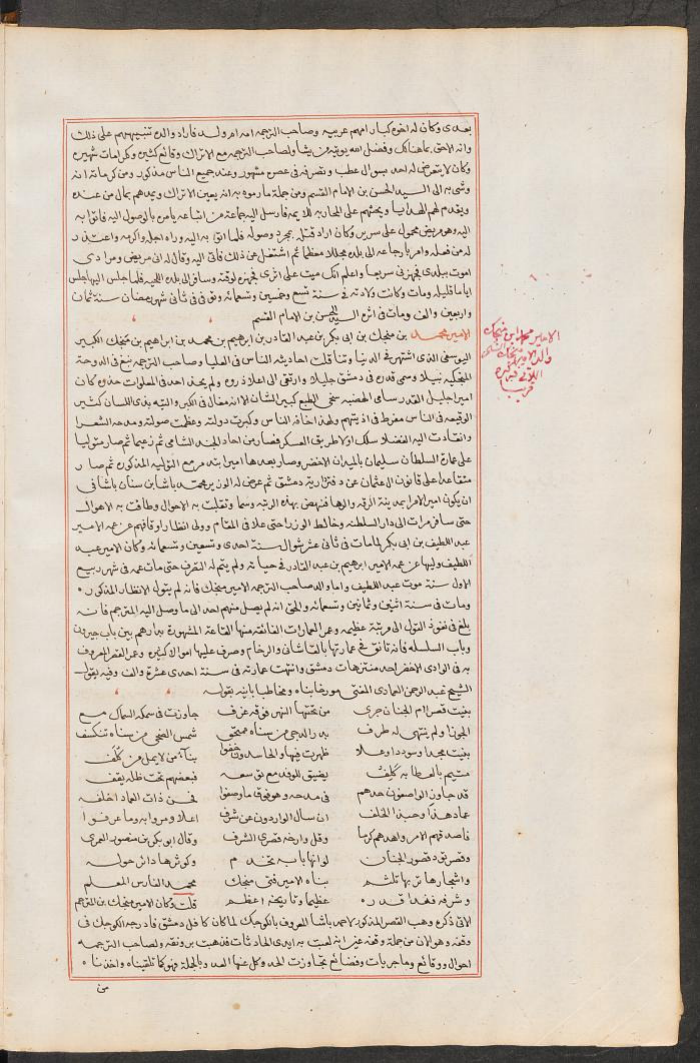 بعدى وكان له اخوة كبار امهم عربيه وصاحب الترجمه امه ام ولد فاراد والده تنبيههم على ذلك
وانه الاحق بما هنالك وفضل الله يوتيه من يشا ولصاحب الترجمه مع الاتراك وقائع كثيره وكرامات شهيره
وكان لا يتعرض له احد بسوا الا عطب وتصرفه في عصره مشهور وعند جميع الناس مذكور ومن كرماته انه
وشى به الى السيد الحسن بن الامام القسم ومن جملة ما رموه به انه يعين الاتراك ويمدهم بمال من عنده
ويقدم لهم الهدايا ويحثهم على المحاربه للايمه فارسل اليه جماعة من اتباعه يامره بالوصول اليه فاتوا به
اليه وهو مريض محمول على سرير وكان اراد قتله بمجرد وصوله فلما اتوا به اليه وراه اجله واكرمه واعتذر
له من فعله وامر بارجاعه الى بلده مجللا معظما ثم اشتغل عن ذلك فاتى اليه وقال له انى مريض ومرادى
اموت ببلدى فجهزنى سريعا واعلم انك ميت على اثرى فجهزه لوقته وسافر الى بلده اللحيه فلما جلس اليها جلس
اياما قليله ومات وكانت ولادته في سنة تسع وخمسين وتسعمائه وتوفى فى ثانى شهر رمضان سنة ثمان
واربعين والف ومات فى اثره السيد الحسن بن الامام القسم
الامير محمد بن منجك بن ابى بكر بن عبد القادر بن ابراهيم بن محمد بن ابراهيم بن منجك الكبير
اليوسفى الذى اشتهر فى الدنيا وتناقلت احاديثه الناس فى العليا وصاحب الترجمه نبغ فى الدوحة
المنجكيه نبيلا وسمى قدره فى دمشق جليلا وارتقى الى اعلا ذروه ولم يحذ احد فى المعلوات حذوه وكان
اميرا جليل القدر سامى الهضبه سخى الطبع كبير الشان الا انه مغال فى الكبر والتيه بذى اللسان كثير
الوقيعه فى الناس مفرط فى اذيتهم ولهذا خافه الناس وكبرت دولته وعظمت صولته ومدحه الشعرا
وانقادت اليه الفضلا وسلك اولا طريق العسكر فصار من احاد الجند الشامى ثم زعيما ثم صار متوليا
على عمارة السلطان سليمان بالميدان الاخضر وصار بعدها امير ابتدمر مع التوليه المذكوره ثم صار
متقاعدا على قانون ال عثمان عن دفترارية دمشق ثم عرض له الوزير محمد باشا بن سنان باشا فى
ان يكون امير الامرا بمدينة الرقه والرها فنهض بهذه الرتبه وسما وتقلبت به الاحوال وطافت به الاهوال
حتى سافر مرات الى دار السلطنه وخالط الوزرا حتى علا فى المقام وولى انظار اوقافهم عن عمه الامير
عبد اللطيف بن ابى بكر لما مات فى ثانى عشر شوال سنة احدى وتسعين وتسعمائه وكان الامير عبد
اللطيف وليها عن عمه الامير ابرهيم بن عبد القادر فى حياته ولم يتم له التصرف حتى مات عمه فى شهر ربيع
الاول سنة موت عبد اللطيف واما والد صاحب الترجمه الامير منجك فانه لم يتول الانظار المذكور
ومات فى سنة اثنتين وثمانين وتسعمائه والحق انه لم يصل منهم احد الى ما وصل اليه المترجم فانه
بلغ فى نفوذ القول الى مرتبة عظيمه وعمر العمارات الفائقه منها القاعة المشهورة بدارهم بين باب جيرون
وباب السلسله فانه تانق فى عمارتها بالقاشانى والرخام وصرف عليها اموالا كثيره وعمر القصر المعروف
به فى الوادى الاخضر احد منتزهات دمشق وانتهت عمارته فى سنة احدى عشرة والف وفيه يقول
الشيخ عبد الرحمن العمادى المفتى مورخا بناه ومخاطبا بانيه بقوله
بنيت قصرا ام الجنان جرى من تحتها النهر فوقه غرف جاوزت فى سمكه السماك مع
الجوزا ولم ينتهى له طرف بدر الدجى من سناه ممتحق شمس الضحى من سناه تنكسف
بنيت مجدا وسوددا وعلا ظهرت فيها والحاسدون خفوا بناءً من لا يمل من كلف
متيم بالعطا به كلِفُ يضيق للوفد مع توسعه فبعضهم تحت ظله يقف
قد جاوز الواصفون حدهم فى مدحه وهو فوق ما وصفوا فمن ذات العماد اخلفه
عماد هذا وحبذا الخلف ان سال الواردون عن شرف اعلا ومروا به وما عرفوا
فاصدقهم الامر واهدهم كرما وقل وارخه قصرى الشرف وقال ابو بكر بن منصور العمرى
وقصر يق دقصور الجنان لو انها بابه تخدم وكوثرها دائر حوله
واشجارها تربها تلثم بناه الامير فتى منجك محمد الفارس المعلم
وشرفه فغدا قدره عظيما وتاريخه اعظم قلت وكان الامير منجك بن المترجم
الاتى ذكره وهب القصر المذكور لاحمد باشا المعروف بالكوجك لما كان كافل دمشق فادرجه الكوجك فى
وقفه وهو الان من جملة وقفه غير انه لعبت به ايدى الحادثات فذهبت برونقه ولصاحب الترجمه
احوال ووقائع وماجريات وفضائع تجاوزت الحد وكل عنها العد وبالجملة فهو كما تلقيناه واخذنا
من
الامير محمد ابن منجك
والد الامير منجك الشاعر
الاتى ذكره
قريبا